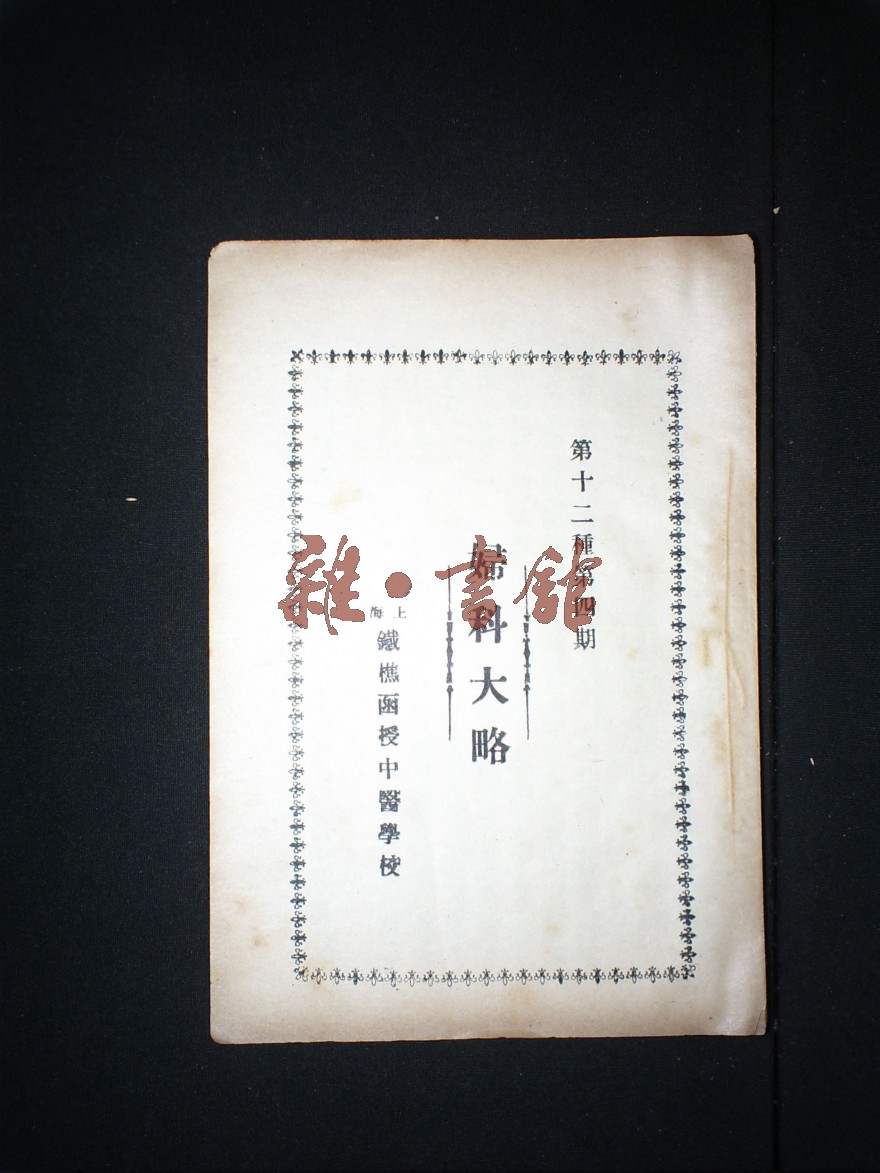 第十二種第四期
婦科大略
上海
鐵樵函授中醫學校
雜·書館